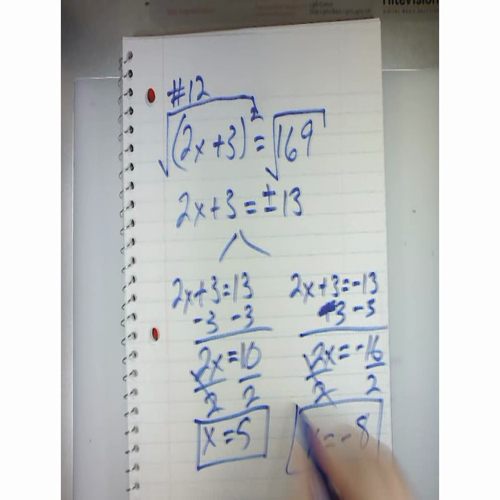 #12
√(2x+3)² = √169
2x+3 = ±13
2x+3=13
-3 -3
2x=10
2 2
x=5
2x+3=-13
-3 -3
2x=-16
2 2
x=-8